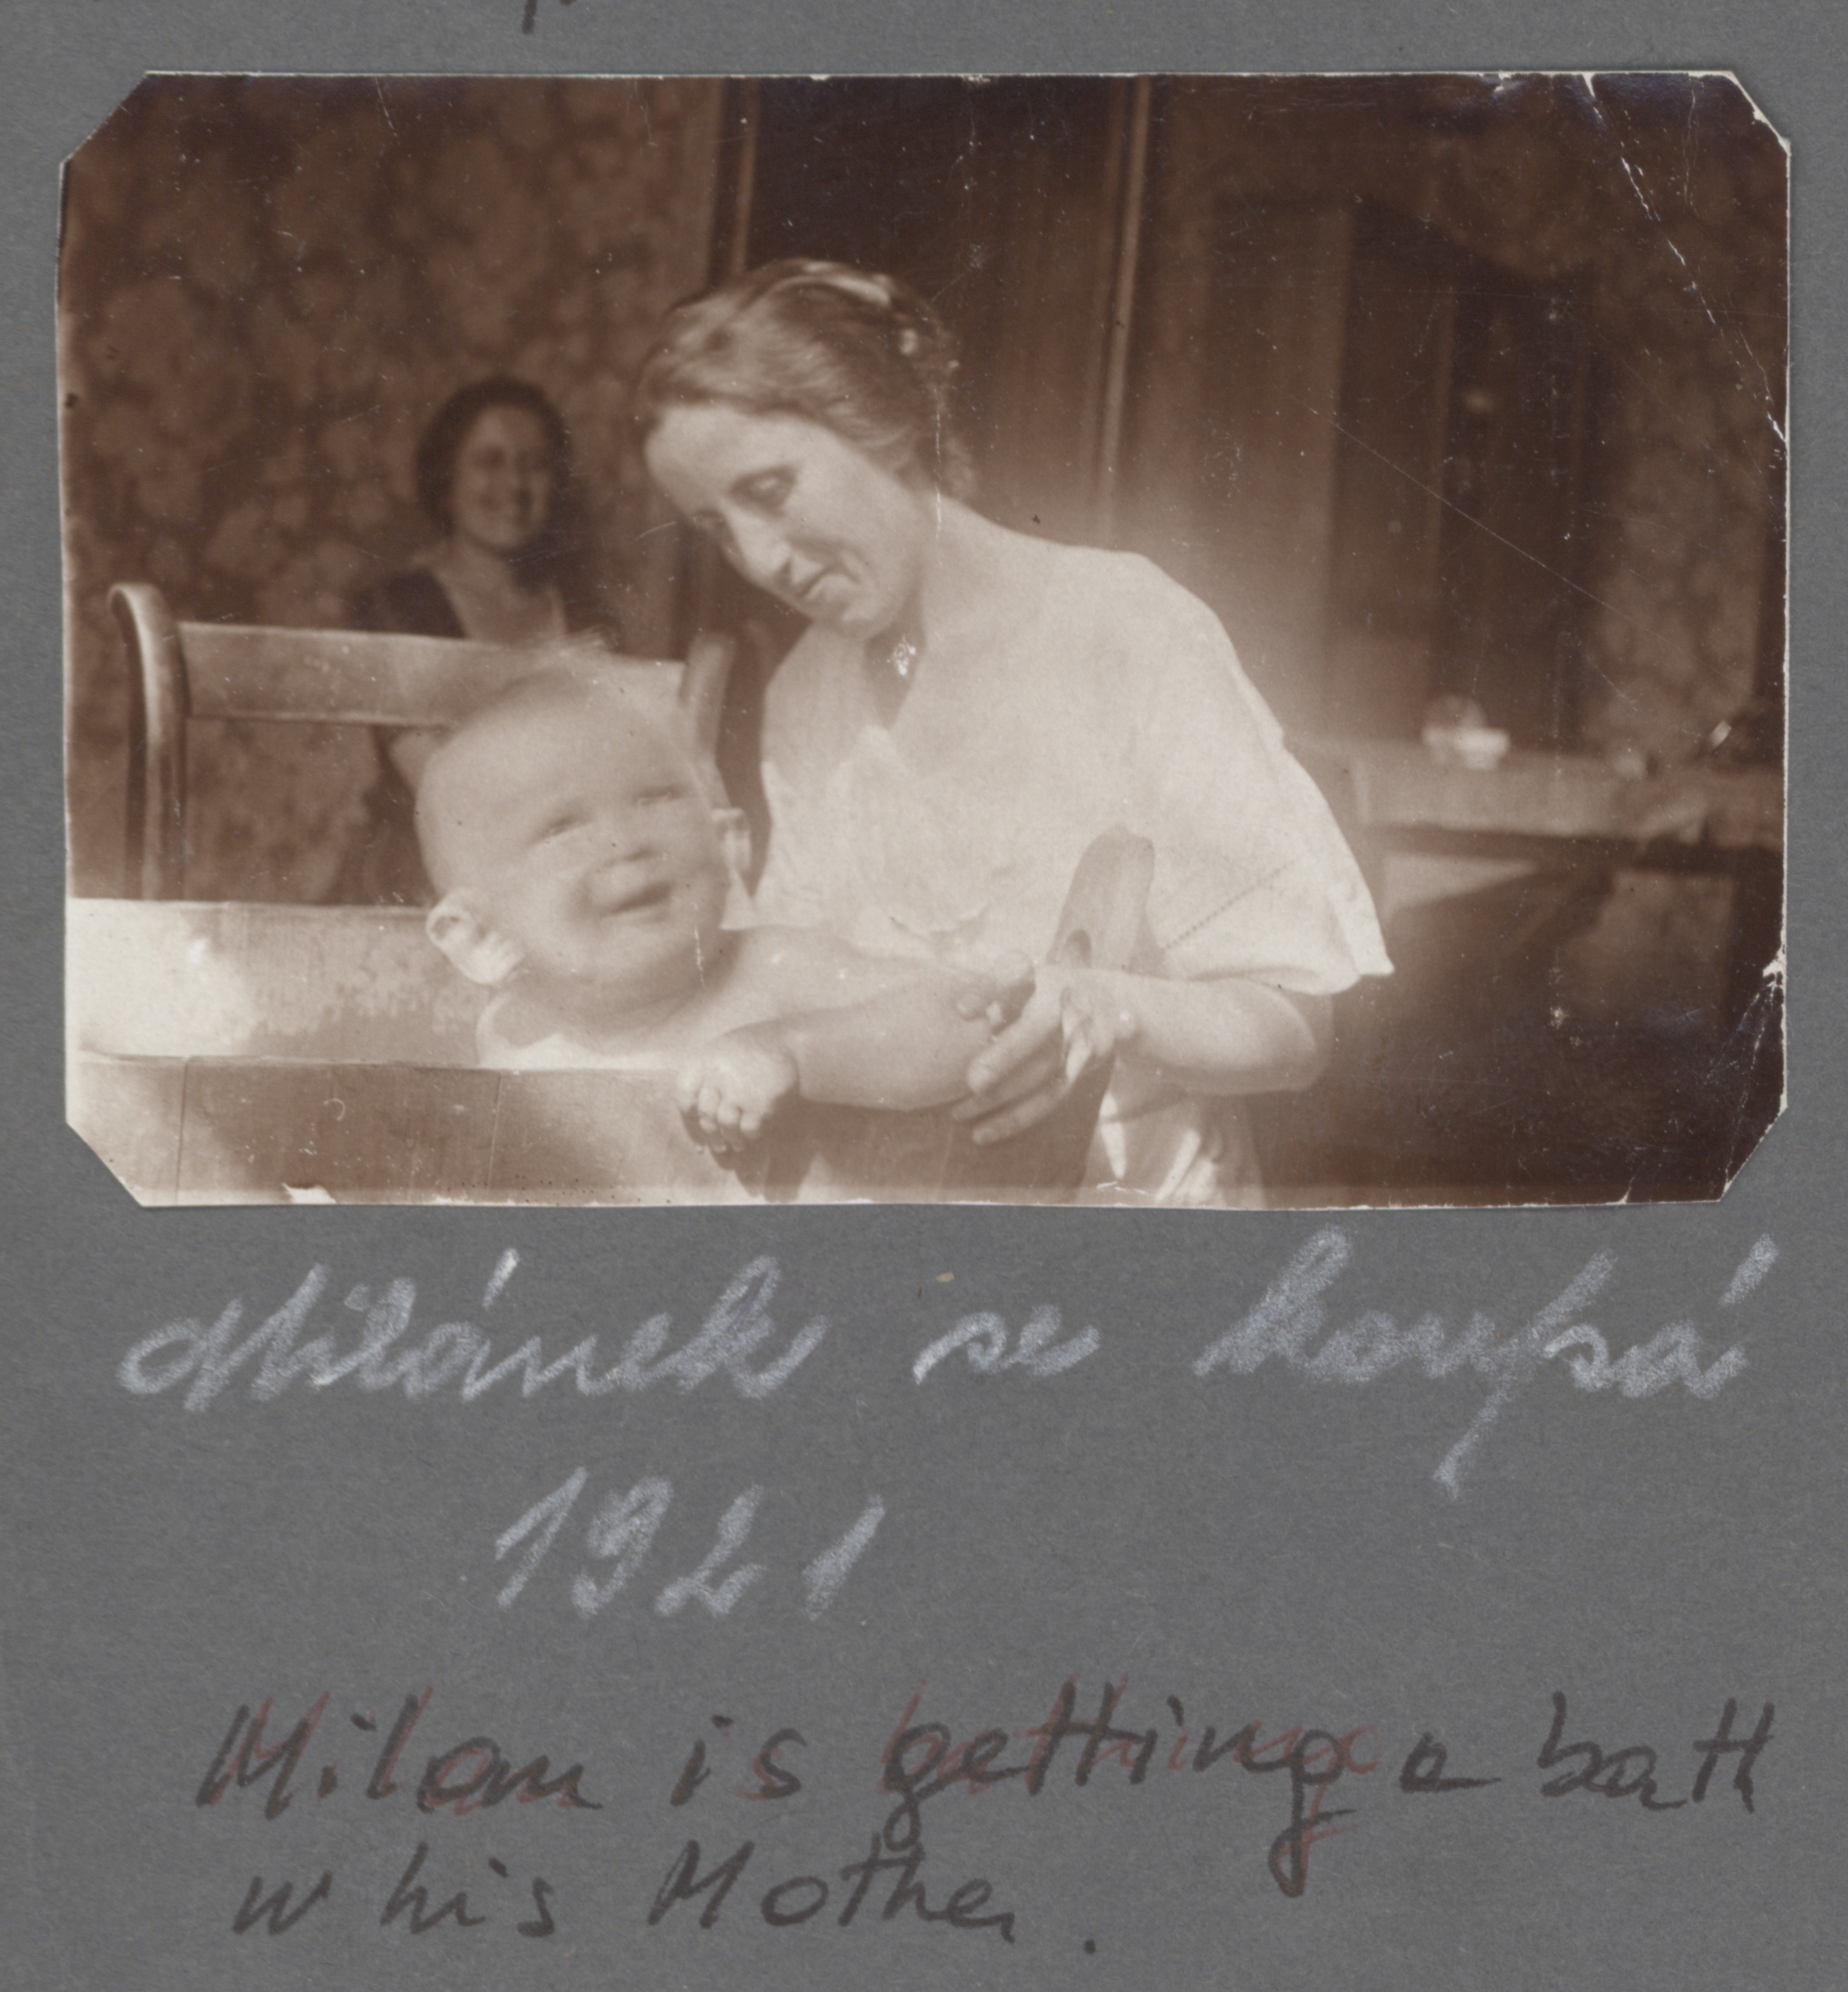 Milánek se koupá
1921
Milan is getting a bath
w his Mother.